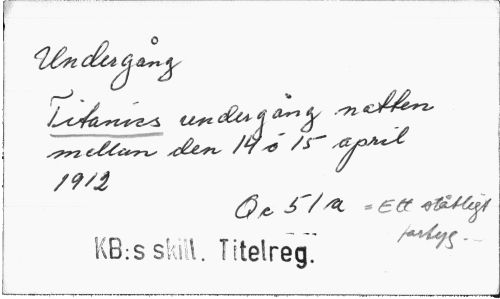 Undergång
Titanics undergång natten
mellan den 14 o 15 april
1912
Qc 51a = Ett ståtligt
fartyg. —
KB:s skill. Titelreg.